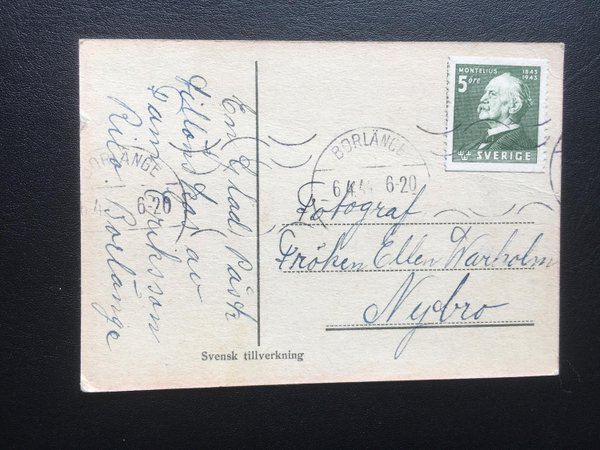 En Glad Påsk
Tillönskas av
Fam Eriksson
Borlänge
BORLÄNGE
6-20
MONTELIUS 1843
1943
5 öre
SVERIGE
BORLÄNGE
6-20
Fotograf
Fröken Ellen Warholm
Nybro
Svensk tillverkning